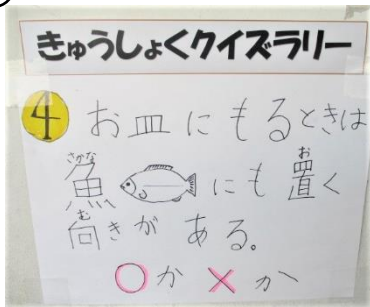 きゅうしょくクイズラリー
4 お皿にもるときは
魚にも置く
向きがある。
○か×か